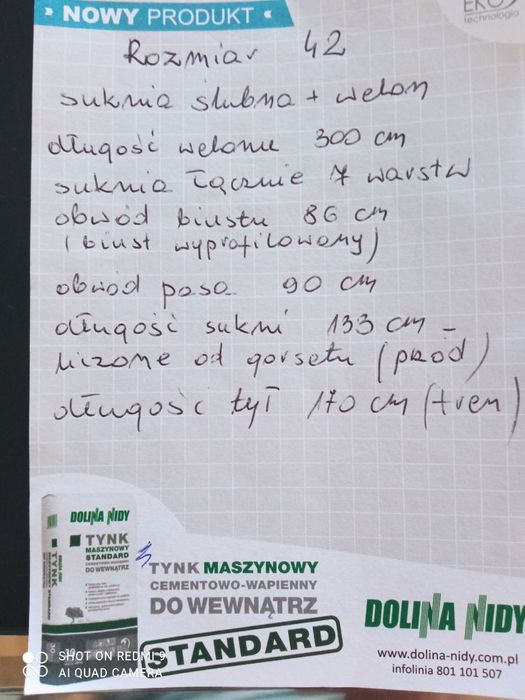 » NOWY PRODUKT «
EKO
technologia
Rozmiar 42
suknia ślubna + welon
długość welonu 300 cm
suknia łącznie 7 warstw
obwód biustu 86 cm
(biust wyprofilowany)
obwód pasa 90 cm
długość sukni 133 cm -
liczone od gorsetu (przód)
długość tył 170 cm (tren)
DOLINA NIDY
TYNK
MASZYNOWY
STANDARD
CEMENTOWO-WAPIENNY
DO WEWNĄTRZ
TYNK MASZYNOWY
CEMENTOWO-WAPIENNY
DO WEWNĄTRZ
STANDARD
DOLINA NIDY
www.dolina-nidy.com.pl
infolinia 801 101 507
SHOT ON REDMI 9
AI QUAD CAMERA